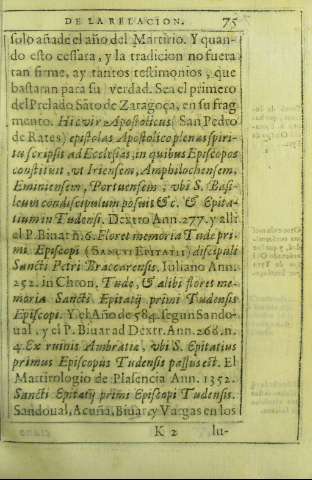 DE LA RELACION. 75
solo añade el año del Martirio. Y quan-
do esto cessara, y la tradicion no fuera
tan firme, ay tantos testimonios, que
bastaran para su verdad. Sea el primero
del Prelado Sãto de Zaragoça, en su frag
mento. Hic vir Apostolicus (San Pedro
de Rates) epistolas Apostolico plenas spiri-
tu scripsit ad Ecclesias, in quibus Episcopos
constituit, vt Iriensem, Amphilochensem,
Eminiensem, Portuensem; vbi S. Basi-
leum condiscipulum posuit &c. & Epita-
tium in Tudensi. Dextro Ann. 277. y alli
el P. Biuar ñ. 6. Floret memoria Tude pri-
mi Episcopi (SANCTI EPITATII) discipuli
Sancti Petri Bracarensis. Iuliano Ann.
252. in Chron. Tude, & alibi flores me-
moria Sancti Epitatij primi Tudensis
Episcopi. Y el Año de 584. segun Sando-
ual, y el P. Biuar ad Dextr. Ann. 268. n.
4. Ex ruinis Ambratia, vbi S. Epitatius
primus Episcopus Tudensis passus est. El
Martirologio de Plasencia Ann. 1352.
Sancti Epitatij primi Episcopi Tudensis.
Sandoual, Acuña, Biuar, y Vargas en los
K 2 lu-